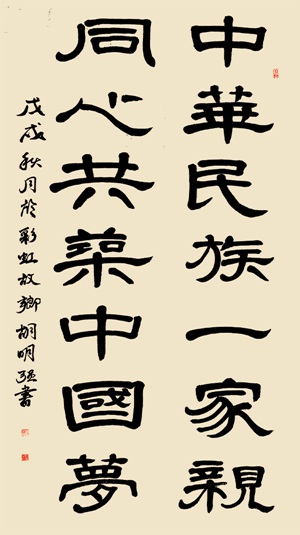 中華民族一家親
同心共築中國夢
戊戌秋月於彩虹故鄉胡明强書